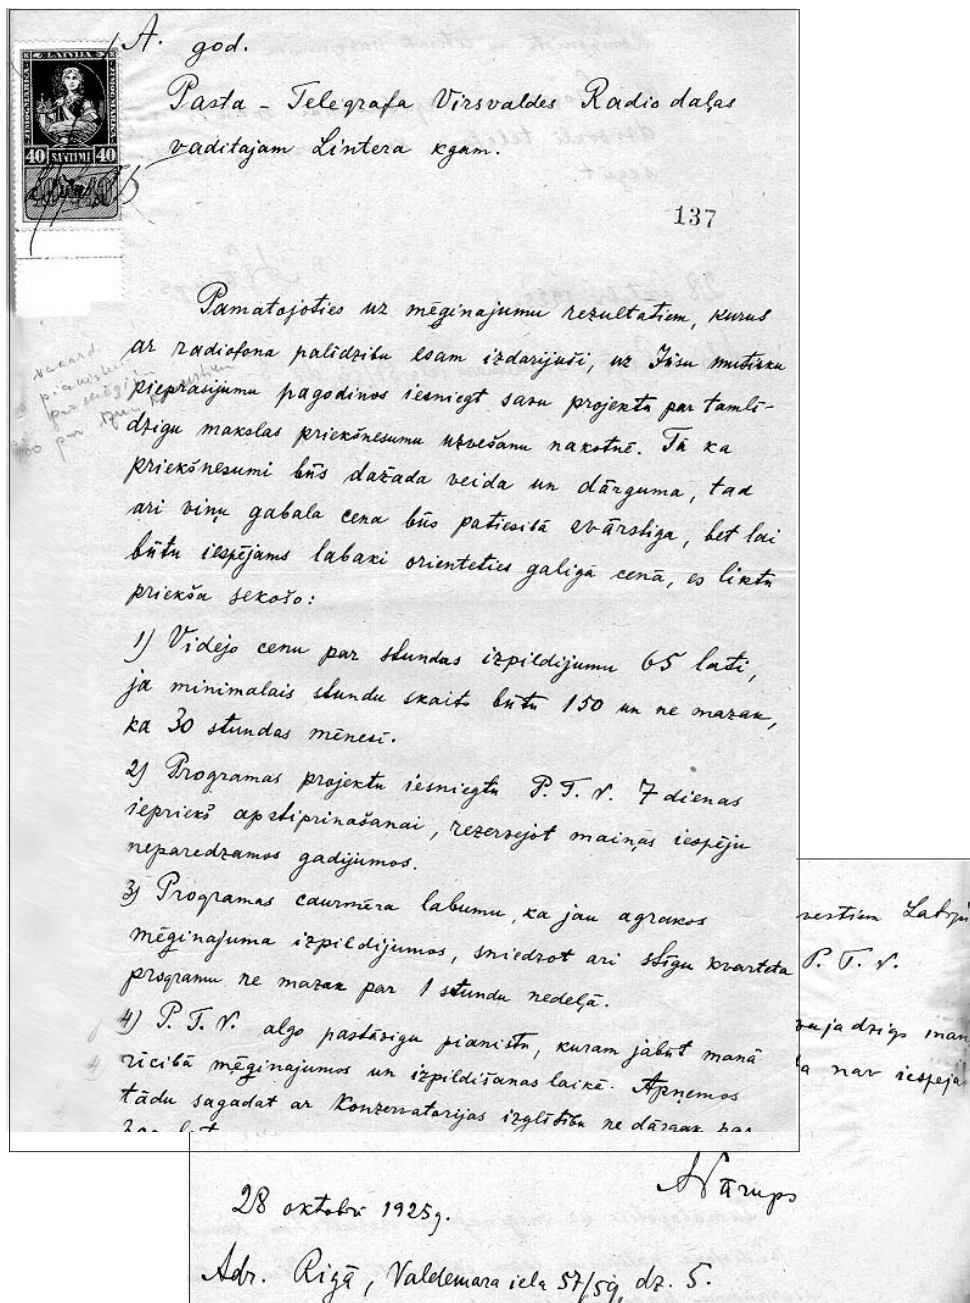 A. god.
Pasta - Telegrafa Virsvaldes Radio daļas
vaditajam Lintera kgam.
LATVIJA
ZIMOGMARKA
ZIMOGMARKA
40 SANTIMI 40
137
Pamatojoties uz mēģinajumu rezultatiem, kurus
ar radiofona palidzibu esam izdarijuši, uz Jūsu mutisku
pieprasijumu pagodinos iesniegt savu projektu par tamli-
dzigu makslas priekšnesumu uzvešanu nakotnē. Tā ka
priekšnesumi būs dažada veida un dārguma, tad
ari viņu gabala cena būs patiesibā svārstiga, bet lai
būtu iespējams labaki orienteties galigā cenā, es liktu
priekša sekošo:
1) Vidējo cenu par stundas izpildijumu 65 lati,
ja minimalais stundu skaits būtu 150 un ne mazak,
ka 30 stundas mēnesī.
2) Programas projektu iesniegtu P. T. V. 7 dienas
iepriekš apstiprinašanai, rezervejot maiņas iespēju
neparedzamos gadijumos.
3) Programas caurmēra labumu, ka jau agrakos
mēģinajuma izpildijumos, sniedzot ari stīgu kvarteta
programu ne mazak par 1 stundu nedeļā.
4) P. T. V. algo pastāvigu pianistu, kuram jabūt manā
rīcibā mēģinajumos un izpildišanas laikā. Apņemos
tādu sagadat ar Konzervatorijas izglitibu ne dārgak par
P. T. V.
vajadzigs man
nav iespeja
A Vārups
28 oktobrī 1925g.
Adr. Rigā, Valdemara iela 57/59, dz. 5.